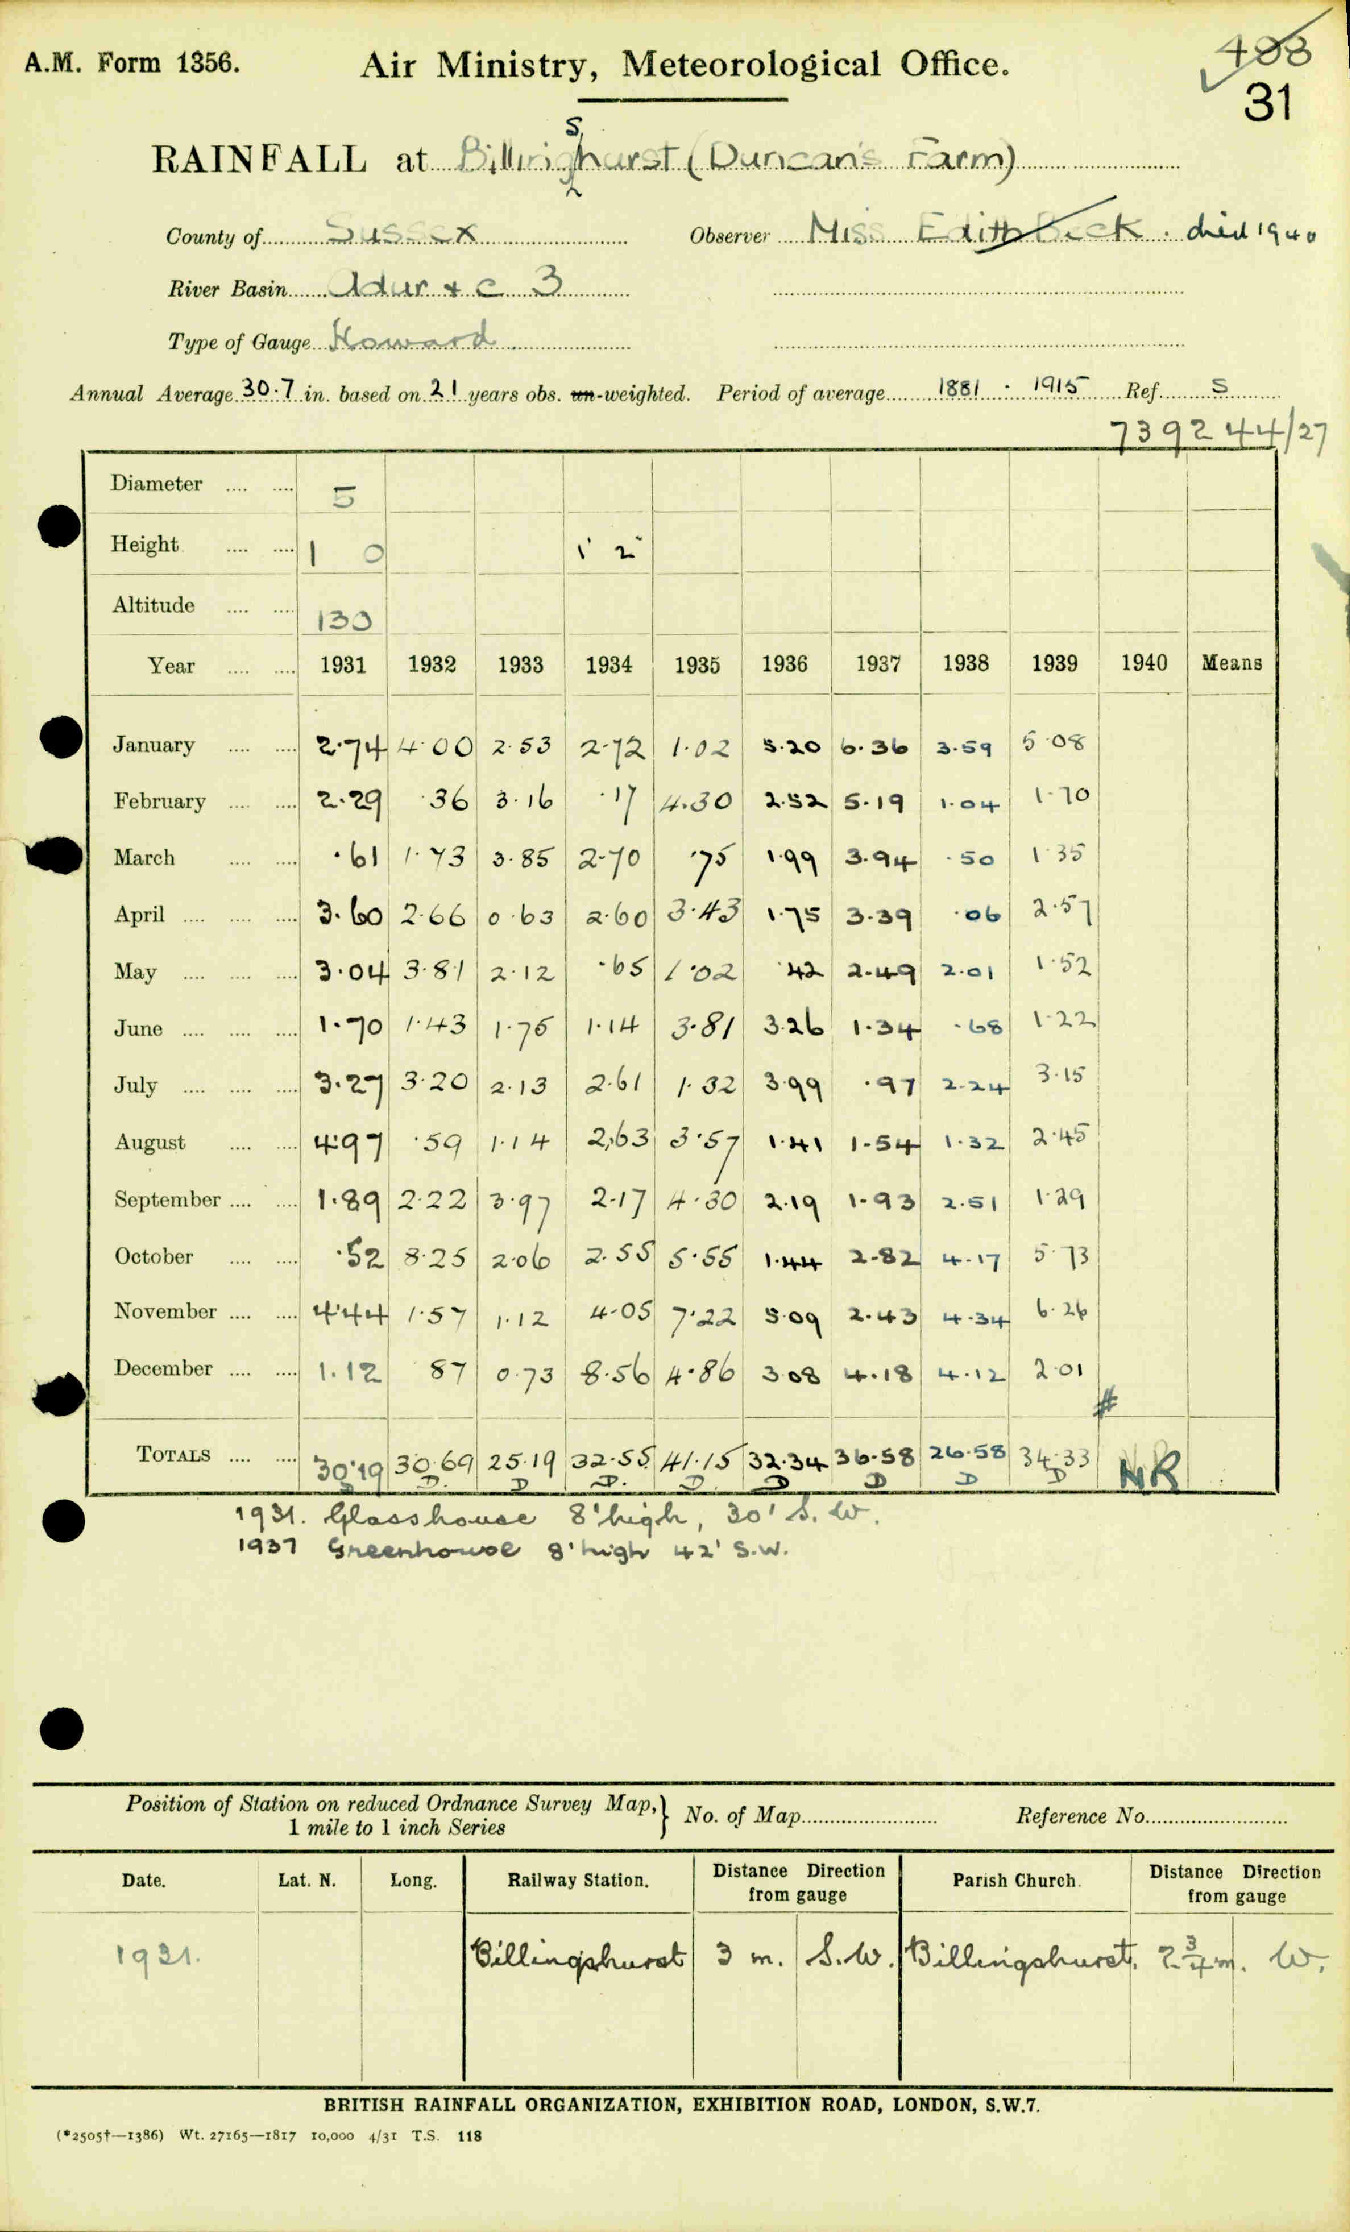 A.M. Form 1356. Air Ministry, Meteorological Office. 408
31
RAINFALL at Billingshurst (Duncan's Farm)
County of Sussex Observer Miss Edith Beck. died 1940
River Basin Adur & c 3
Type of Gauge Howard
Annual Average 30.7 in. based on 21 years obs. un-weighted. Period of average 1881 - 1915 Ref. S
739244/27
Diameter .... .... 5
Height .... .... 1 0 1' 2"
Altitude .... .... 130
Year .... .... 1931 1932 1933 1934 1935 1936 1937 1938 1939 1940 Means
January .... .... 2.74 4.00 2.53 2.72 1.02 5.20 6.36 3.59 5.08
February .... .... 2.29 .36 3.16 .17 4.30 2.52 5.19 1.04 1.70
March .... .... .61 1.73 3.85 2.70 .75 1.99 3.94 .50 1.35
April .... .... .... 3.60 2.66 0.63 2.60 3.43 1.75 3.39 .06 2.57
May .... .... .... 3.04 3.81 2.12 .65 1.02 .42 2.49 2.01 1.52
June .... .... .... 1.70 1.43 1.75 1.14 3.81 3.26 1.34 .68 1.22
July .... .... .... 3.27 3.20 2.13 2.61 1.32 3.99 .97 2.24 3.15
August .... .... 4.97 .59 1.14 2.63 3.57 1.41 1.54 1.32 2.45
September .... .... 1.89 2.22 3.97 2.17 4.30 2.19 1.93 2.51 1.29
October .... .... .52 8.25 2.06 2.55 5.55 1.44 2.82 4.17 5.73
November .... .... 4.44 1.57 1.12 4.05 7.22 5.09 2.43 4.34 6.26
December .... .... 1.12 87 0.73 8.56 4.86 3.08 4.18 4.12 2.01
#
TOTALS .... .... 30.19 30.69 25.19 32.55 41.15 32.34 36.58 26.58 34.33 NR
D. D D. D. D D D D
1931. Glasshouse 8' high, 30' S.W.
1937 Greenhouse 8' high 42' S.W.
Position of Station on reduced Ordnance Survey Map, 1 mile to 1 inch Series } No. of Map Reference No.
Date. Lat. N. Long. Railway Station. Distance Direction from gauge Parish Church. Distance Direction from gauge
1931. Billingshurst 3 m. S.W. Billingshurst. 2 3/4 m. W.
BRITISH RAINFALL ORGANIZATION, EXHIBITION ROAD, LONDON, S.W.7.
(*2505†—1386) Wt. 27165—1817 10,000 4/31 T.S. 118